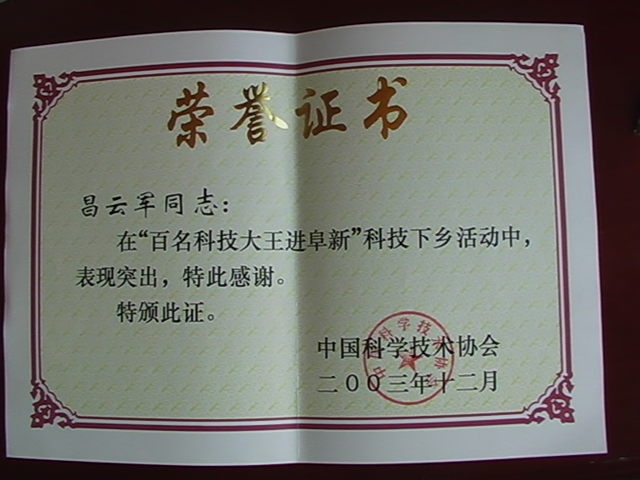 荣誉证书
昌云军同志：
在“百名科技大王进阜新”科技下乡活动中，
表现突出，特此感谢。
特颁此证。
中国科学技术协会
二００三年十二月